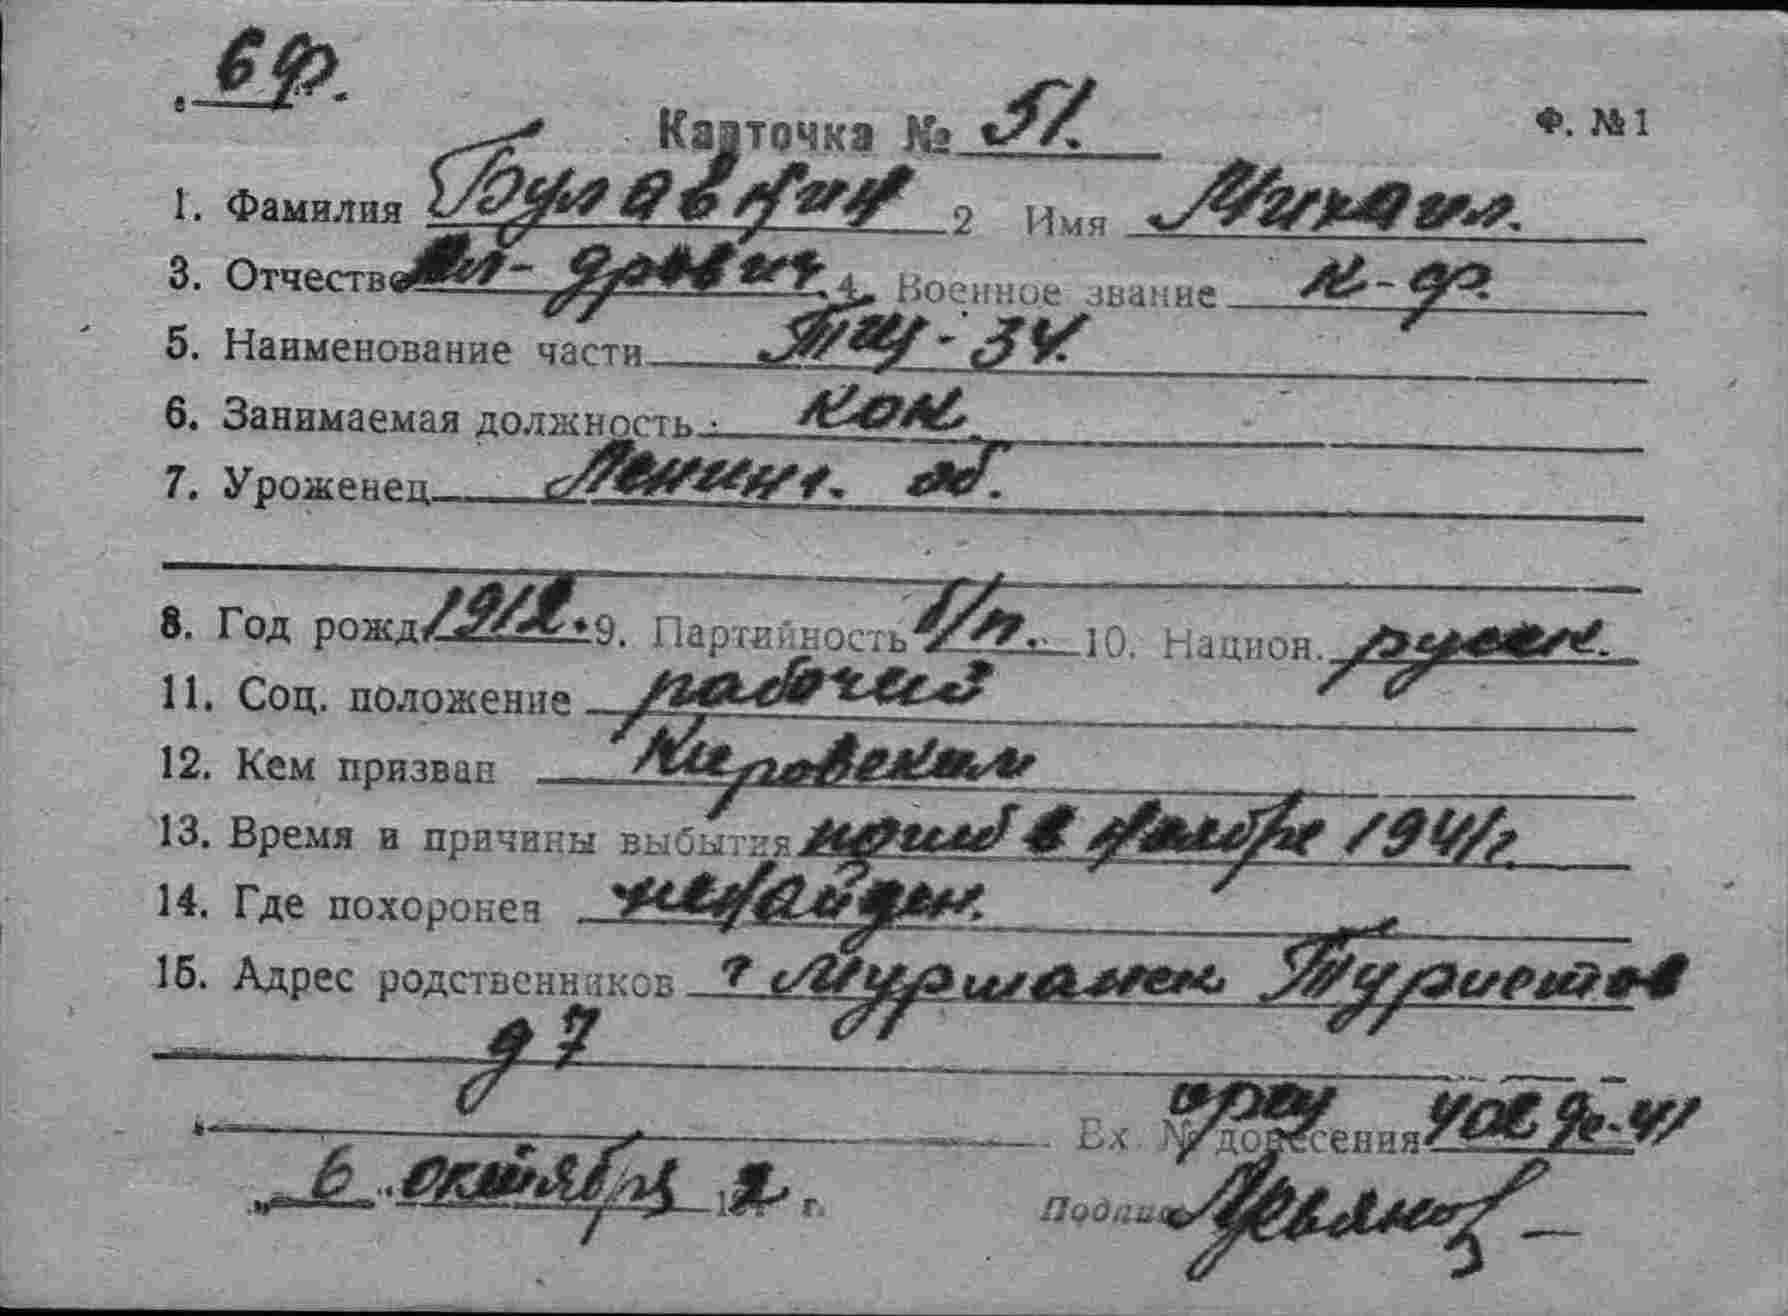 6 ф.
Карточка № 51. Ф. №1
1. Фамилия Булавкин 2 Имя Михаил.
3. Отчество Ал-дрович 4. Военное звание к-ф.
5. Наименование части Тщ-34.
6. Занимаемая должность кок
7. Уроженец Ленинг. об.
8. Год рожд 1912. 9. Партийность б/п. 10. Национ. русск.
11. Соц. положение рабочий
12. Кем призван Кировским
13. Время и причины выбытия погиб в ноябре 1941г.
14. Где похоронен ненайден.
15. Адрес родственников г Мурманск Туристов
д 7
Вх. № донесения 402 41
„ 6 " октября 2 г.
Подпись